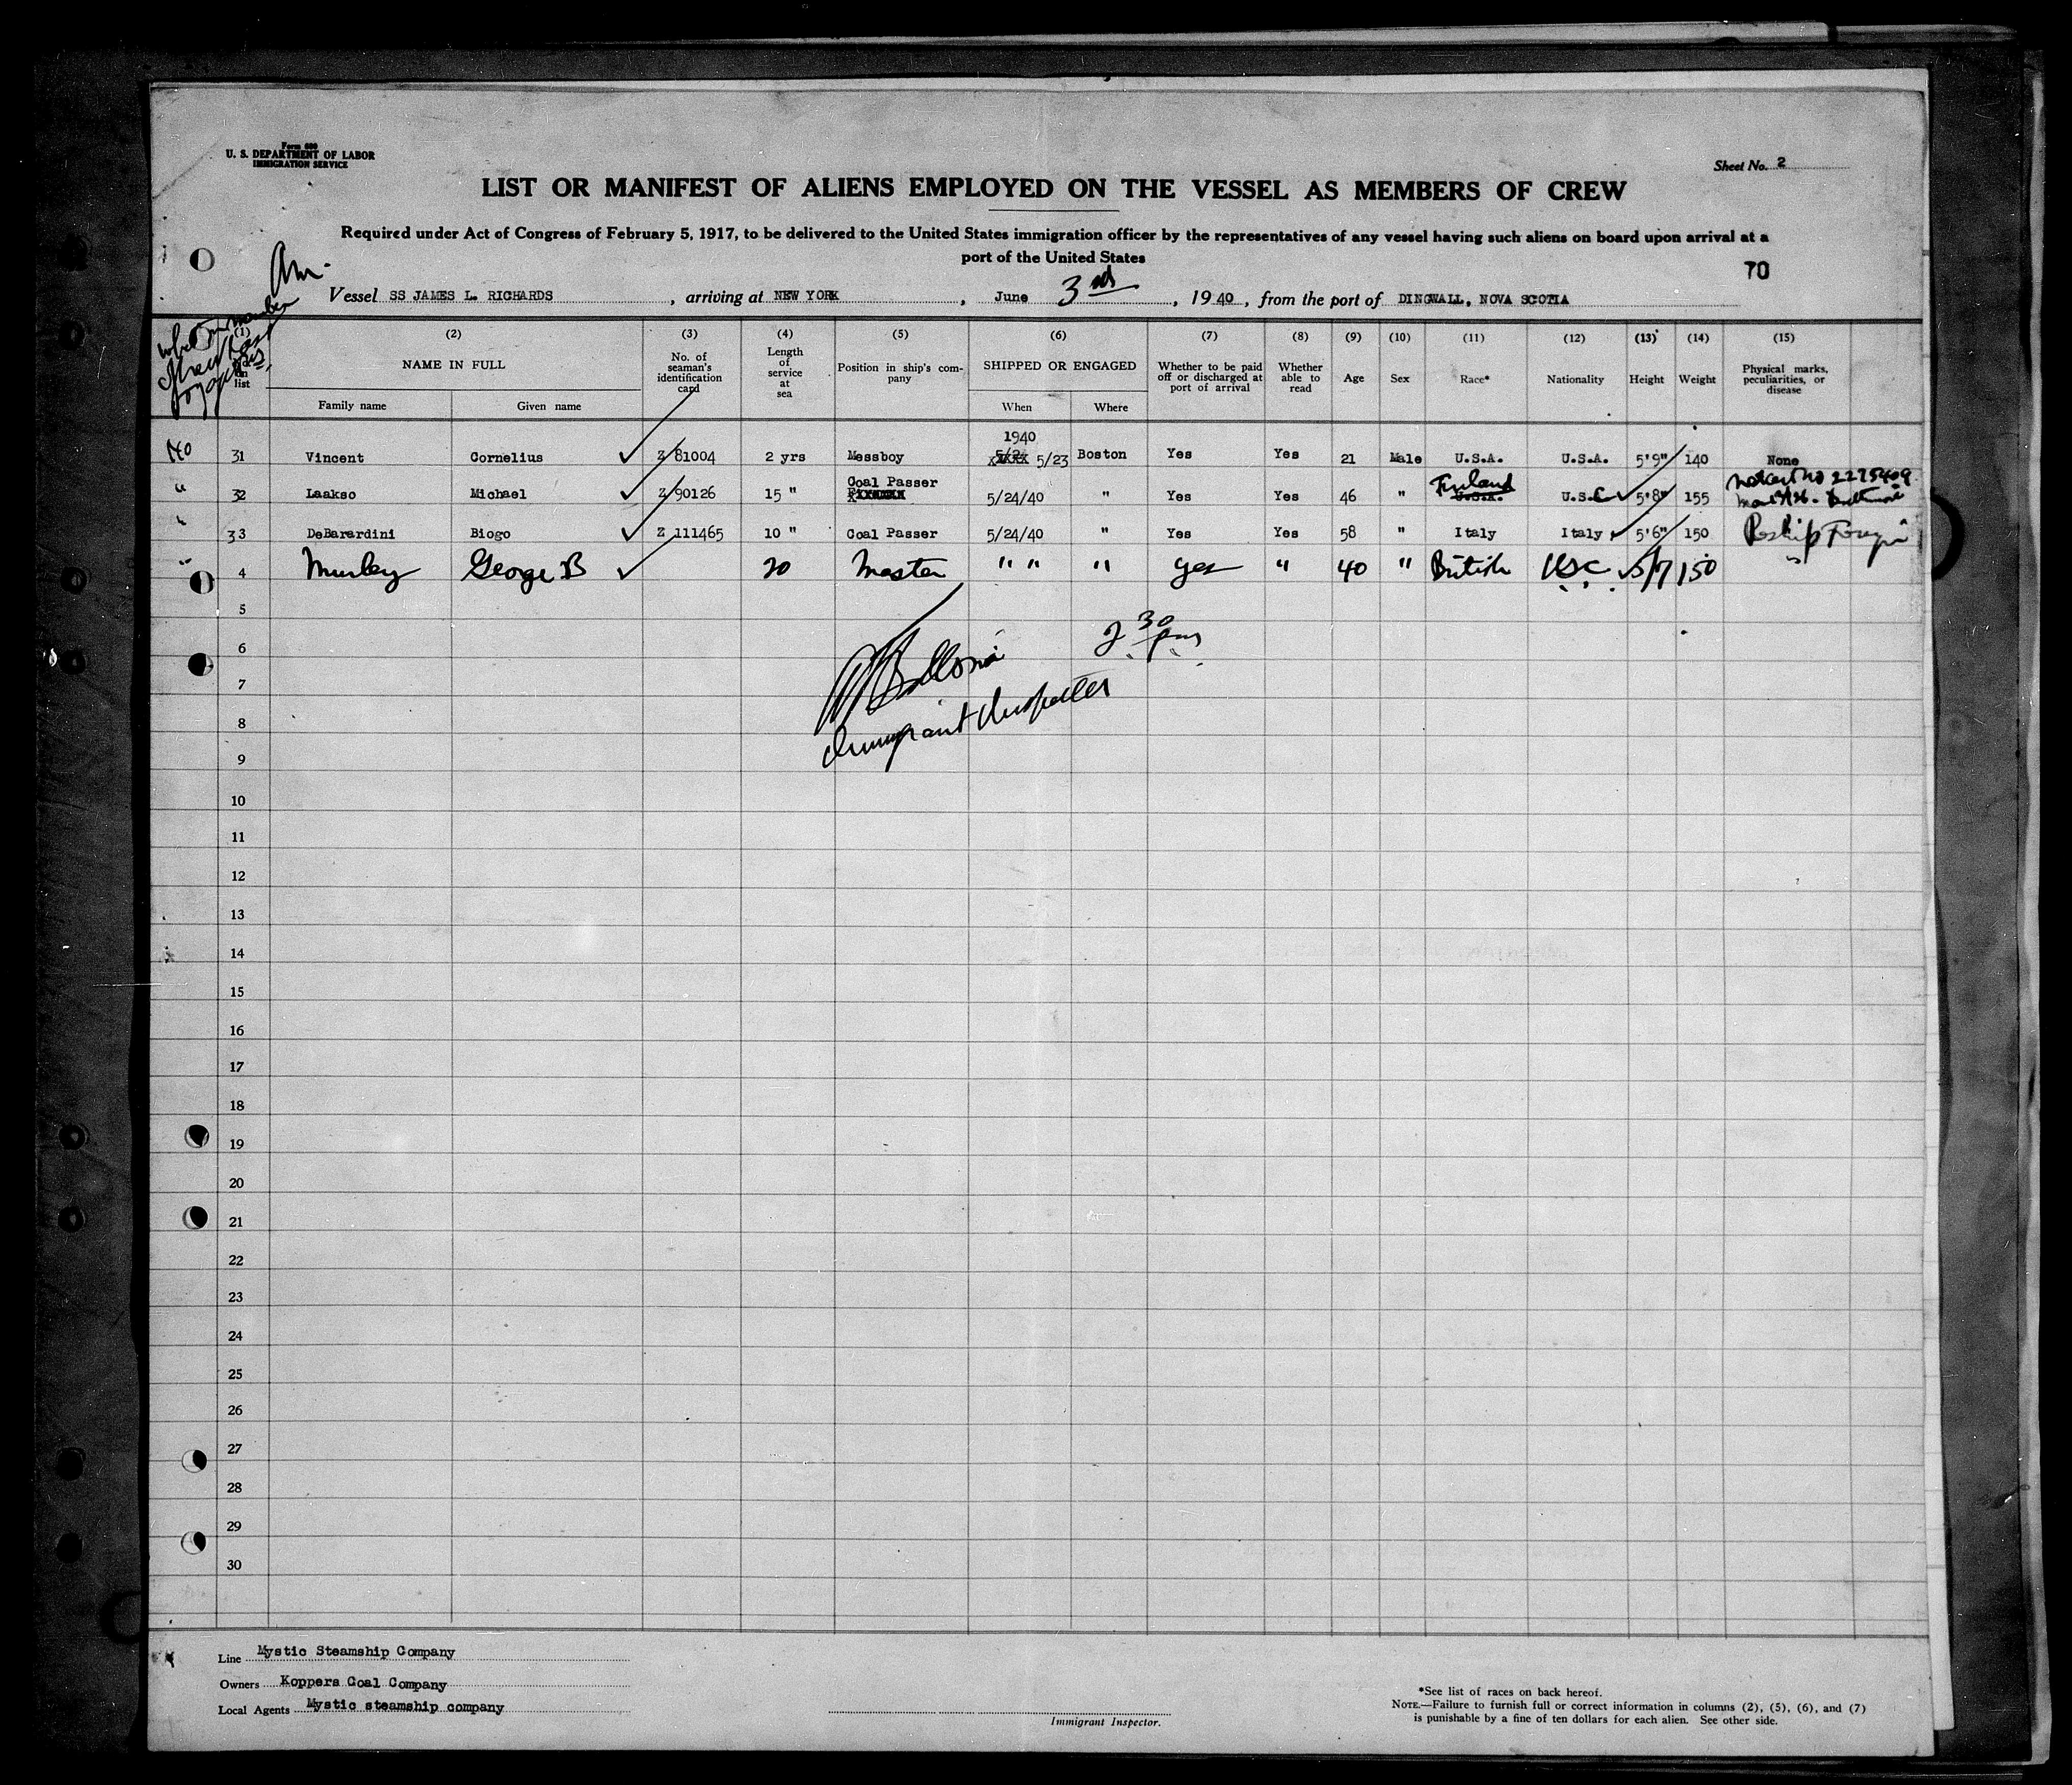 Form 680
U. S. DEPARTMENT OF LABOR
IMMIGRATION SERVICE
Sheet No. 2
LIST OR MANIFEST OF ALIENS EMPLOYED ON THE VESSEL AS MEMBERS OF CREW
Required under Act of Congress of February 5, 1917, to be delivered to the United States immigration officer by the representatives of any vessel having such aliens on board upon arrival at a
port of the United States
70
Vessel SS JAMES L. RICHARDS, arriving at NEW YORK, June 3rd, 1940, from the port of DINGWALL, NOVA SCOTIA
(1) (2) (3) (4) (5) (6) (7) (8) (9) (10) (11) (12) (13) (14) (15)
on list
NAME IN FULL
Family name Given name
No. of seaman's identification card
Length of service at sea
Position in ship's company
SHIPPED OR ENGAGED
When Where
Whether to be paid off or discharged at port of arrival
Whether able to read
Age
Sex
Race*
Nationality
Height
Weight
Physical marks, peculiarities, or disease
1940
No 31 Vincent Cornelius Z 81004 2 yrs Messboy 5/23 Boston Yes Yes 21 Male U.S.A. U.S.A. 5'9" 140 None
" 32 Laakso Michael Z 90126 15 " Coal Passer 5/24/40 " Yes Yes 46 " Finland U.S.C 5'8" 155
" 33 DeBarardini Biogo Z 111465 10 " Coal Passer 5/24/40 " Yes Yes 58 " Italy Italy 5'6" 150
" 4 Murley George B 20 Master " " " Yes " 40 " British USC 5/7 150
5
2 30 pm
6
7
Immigrant Inspector
8
9
10
11
12
13
14
15
16
17
18
19
20
21
22
23
24
25
26
27
28
29
30
Line Mystic Steamship Company
Owners Koppers Coal Company
Local Agents Mystic steamship company
Immigrant Inspector.
*See list of races on back hereof.
NOTE.—Failure to furnish full or correct information in columns (2), (5), (6), and (7)
is punishable by a fine of ten dollars for each alien. See other side.